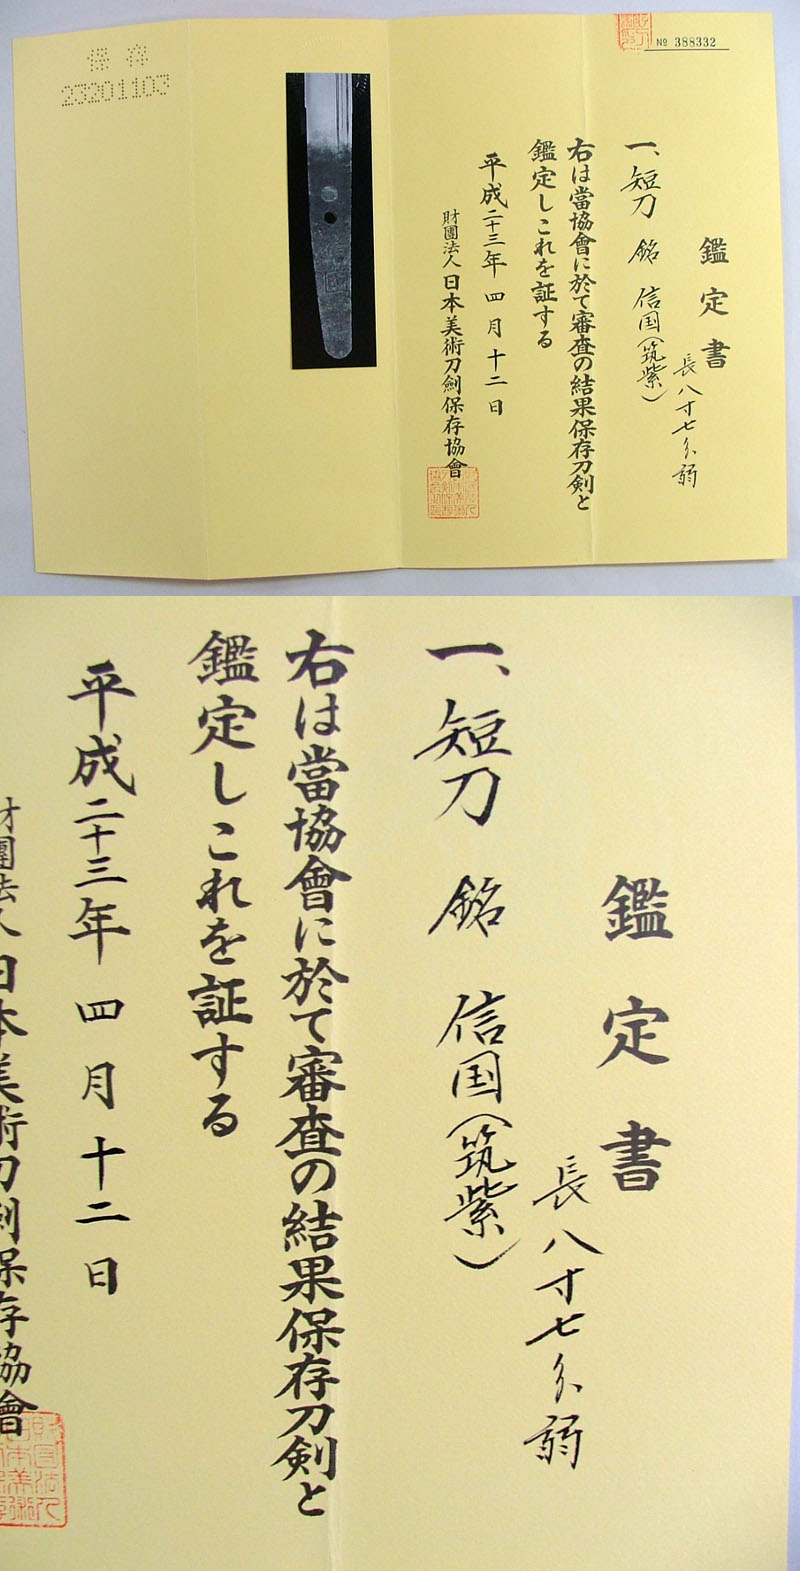 保存
23201103
№ 388332
鑑定書
一、短刀 銘 信国(筑紫)
長八寸七分弱
右は當協會に於て審査の結果保存刀剣と
鑑定しこれを証する
平成二十三年四月十二日
財團法人日本美術刀劍保存協會
鑑定書
一、短刀 銘 信国(筑紫)
長八寸七分弱
右は當協會に於て審査の結果保存刀剣と
鑑定しこれを証する
平成二十三年四月十二日
財團法人日本美術刀劍保存協會